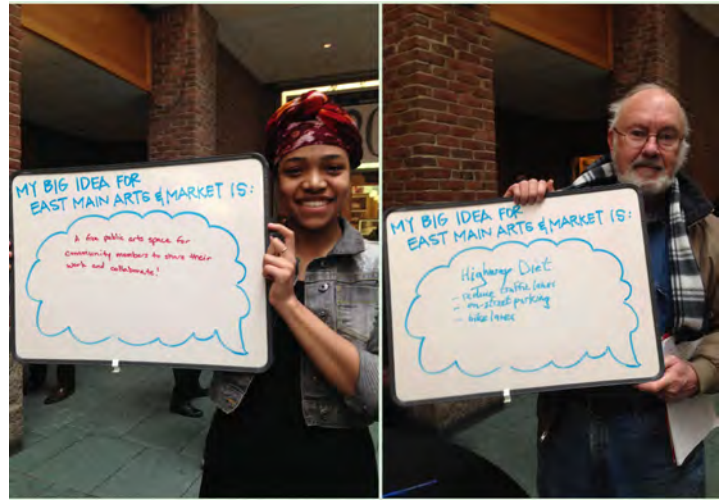 MY BIG IDEA FOR
EAST MAIN ARTS & MARKET IS:
A fun public arts space for
community members to share their
work and collaborate!
MY BIG IDEA FOR
EAST MAIN ARTS & MARKET IS:
Highway Diet
- reduce traffic lanes
- on-street parking
- bike lanes